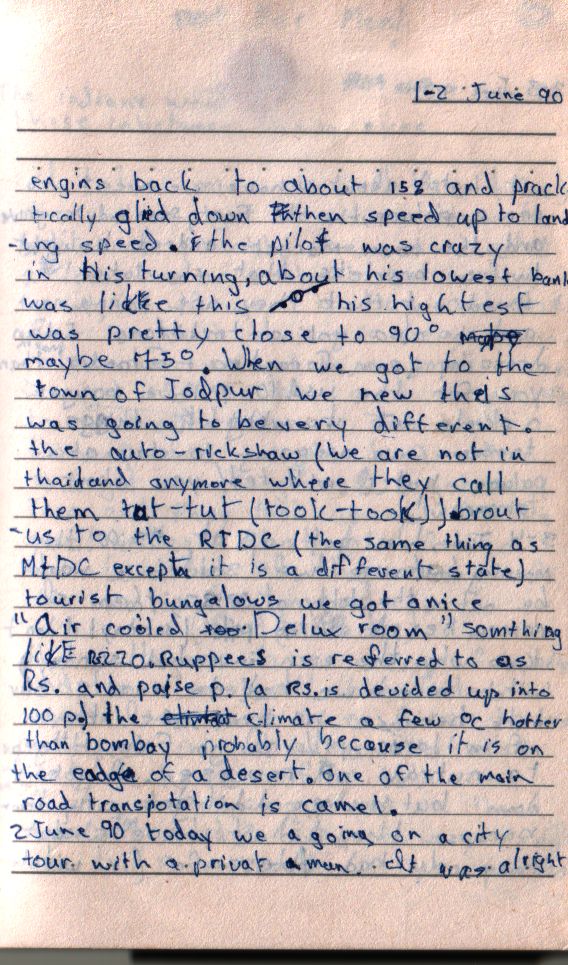 1-2 June 90
engins back to about 15% and prack
tically glied down then speed up to land
-ing speed. the pilot was crazy
in his turning, about his lowest bank
was like this his hightest
was pretty close to 90°
maybe 75°. When we got to the
town of Jodpur we new this
was going to be very different.
the auto-rickshaw (We are not in
thailand anymore where they call
them tut-tut (took-took)) brout
-us to the RTDC (the same thing as
MTDC except it is a different state)
tourist bungalows we got a nice
"Air cooled Delux room" somthing
like Rs220. Ruppees is referred to as
Rs. and paise p. (a Rs. is devided up into
100 p.) the climate a few oc hotter
than bombay probably because it is on
the eadge of a desert. one of the main
road transpotation is camel.
2 June 90 today we a going on a city
tour. with a privat man. It was alright